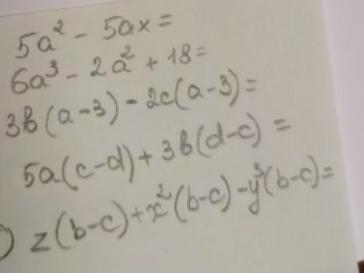 5a² - 5ax =
6a³ - 2a² + 18 =
3b(a-3) - 2c(a-3) =
5a(c-d) + 3b(d-c) =
) z(b-c) + x²(b-c) - y³(b-c) =